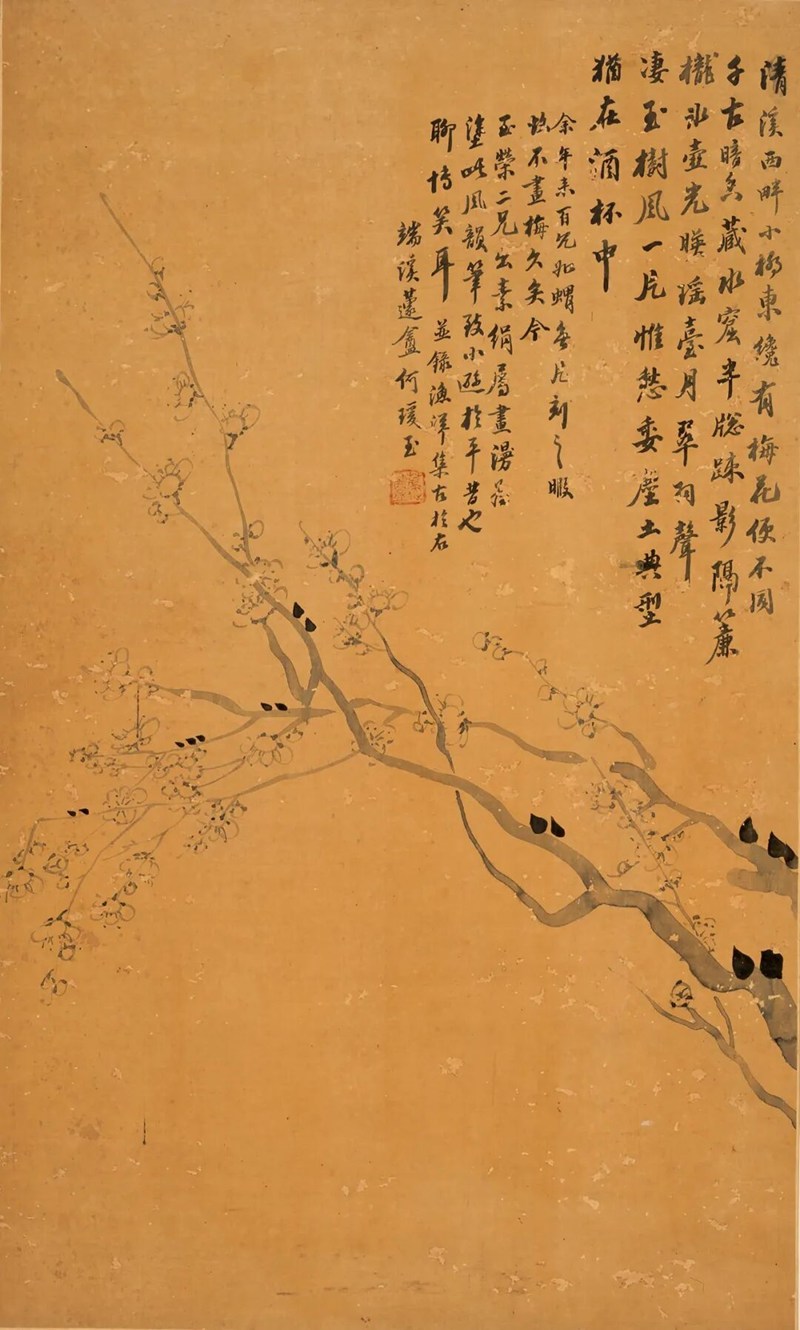 清溪西畔小橋東纔有梅花便不同
千古暗香藏水窟半牕踈影隔簾
櫳冰壺光暎瑤臺月翠羽聲
凄玉樹風一片惟愁委塵土典型
猶在酒杯中
余年來百冗如蝟無片刻之暇
故不畫梅久矣今
玉榮二兄出素絹屬畫漫爲
塗此風韻筆致小遜於平昔也
聊博笑耳並錄漁洋集古於右
端溪蘧盦何瑗玉